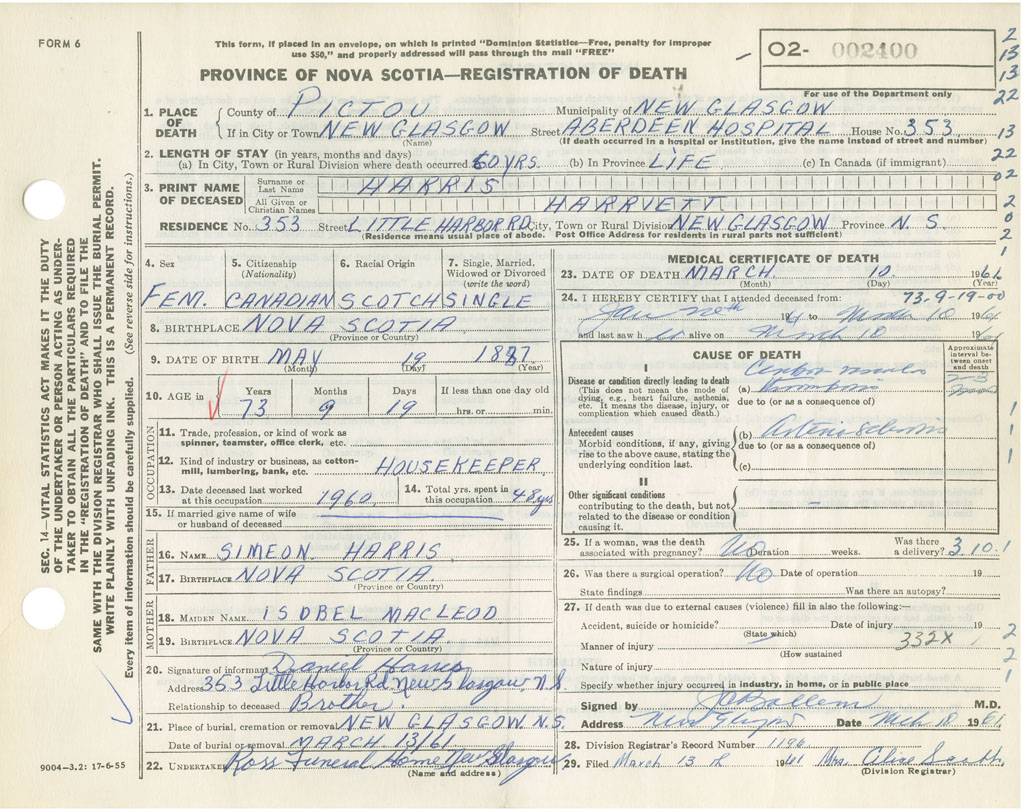 FORM 6
This form, if placed in an envelope, on which is printed "Dominion Statistics—Free, penalty for improper
use $50," and properly addressed will pass through the mail "FREE"
O2- 002400
For use of the Department only
PROVINCE OF NOVA SCOTIA—REGISTRATION OF DEATH
2
13
13
22
13
22
02
2
0
2
1
1. PLACE OF DEATH
County of PICTOU Municipality of NEW GLASGOW
If in City or Town NEW GLASGOW Street ABERDEEN HOSPITAL House No. 353
(Name) (If death occurred in a hospital or institution, give the name instead of street and number)
2. LENGTH OF STAY (in years, months and days)
(a) In City, Town or Rural Division where death occurred 60 YRS. (b) In Province LIFE (c) In Canada (if immigrant)
3. PRINT NAME OF DECEASED
Surname or Last Name HARRIS
All Given or Christian Names HARRIETT
RESIDENCE No. 353 Street LITTLE HARBOR RD. City, Town or Rural Division NEW GLASGOW Province N. S.
(Residence means usual place of abode. Post Office Address for residents in rural parts not sufficient)
4. Sex 5. Citizenship (Nationality) 6. Racial Origin 7. Single, Married, Widowed or Divorced (write the word)
FEM. CANADIAN SCOTCH SINGLE
8. BIRTHPLACE NOVA SCOTIA
(Province or Country)
9. DATE OF BIRTH MAY 19 1887
(Month) (Day) (Year)
10. AGE in Years Months Days If less than one day old
73 9 19 hrs. or min.
OCCUPATION
11. Trade, profession, or kind of work as spinner, teamster, office clerk, etc.
12. Kind of industry or business, as cotton-mill, lumbering, bank, etc. HOUSEKEEPER
13. Date deceased last worked at this occupation 1960 14. Total yrs. spent in this occupation 48 yrs
15. If married give name of wife or husband of deceased
FATHER
16. NAME SIMEON HARRIS
17. BIRTHPLACE NOVA SCOTIA.
(Province or Country)
MOTHER
18. MAIDEN NAME ISOBEL MACLEOD
19. BIRTHPLACE NOVA SCOTIA
(Province or Country)
20. Signature of informant Daniel Harris
Address 353 Little Harbor Rd. New Glasgow, N.S.
Relationship to deceased Brother.
21. Place of burial, cremation or removal NEW GLASGOW N.S.
Date of burial or removal MARCH 13/61
22. UNDERTAKER Ross Funeral Home New Glasgow
(Name and address)
MEDICAL CERTIFICATE OF DEATH
23. DATE OF DEATH MARCH 10 1961
(Month) (Day) (Year)
24. I HEREBY CERTIFY that I attended deceased from: 73-9-19-00
19 to March 10 1961
and last saw h alive on March 10 19
CAUSE OF DEATH
Approximate interval between onset and death
I
Disease or condition directly leading to death
(This does not mean the mode of dying, e.g., heart failure, asthenia, etc. It means the disease, injury, or complication which caused death.)
(a) Thrombosis
due to (or as a consequence of)
Antecedent causes
Morbid conditions, if any, giving rise to the above cause, stating the underlying condition last.
(b)
due to (or as a consequence of)
(c)
II
Other significant conditions
contributing to the death, but not related to the disease or condition causing it.
1
1
1
25. If a woman, was the death associated with pregnancy? No Duration weeks. Was there a delivery? 3.10.1
26. Was there a surgical operation? No Date of operation 19
State findings Was there an autopsy?
27. If death was due to external causes (violence) fill in also the following:—
Accident, suicide or homicide? Date of injury 19
(State which)
Manner of injury 332X
(How sustained)
Nature of injury
Specify whether injury occurred in industry, in home, or in public place
2
1
2
1
Signed by J C Ballem M.D.
Address New Glasgow Date Mch 10 1961
28. Division Registrar's Record Number 1196
29. Filed March 13 th 1961 Mrs. Alice Scott
(Division Registrar)
SEC. 14—VITAL STATISTICS ACT MAKES IT THE DUTY
OF THE UNDERTAKER OR PERSON ACTING AS UNDER-
TAKER TO OBTAIN ALL THE PARTICULARS REQUIRED
IN THE "REGISTRATION OF DEATH" AND TO FILE THE
SAME WITH THE DIVISION REGISTRAR WHO SHALL ISSUE THE BURIAL PERMIT.
WRITE PLAINLY WITH UNFADING INK. THIS IS A PERMANENT RECORD.
Every item of information should be carefully supplied. (See reverse side for instructions.)
9004-3.2: 17-6-55